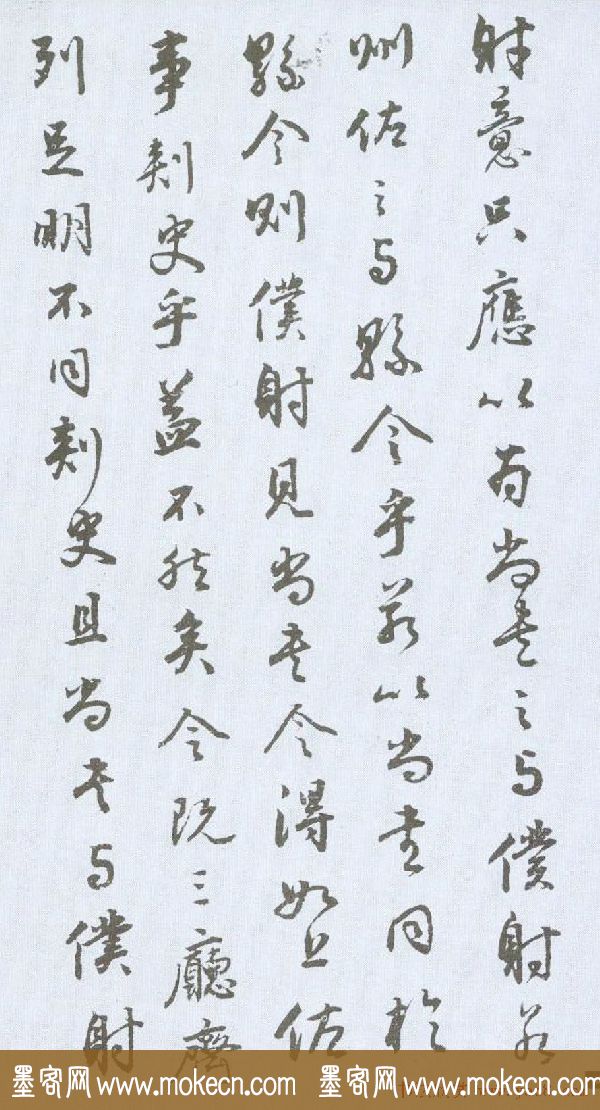 射意只應以為尚書之與僕射若
州佐之與縣令乎若以尚書同於
縣令則僕射見尚書令得如上佐
事刺史乎益不然矣今既三廳齊
列足明不同刺史且尚書與僕射
墨客网 www.mokecn.com 墨客网 www.mokecn.com